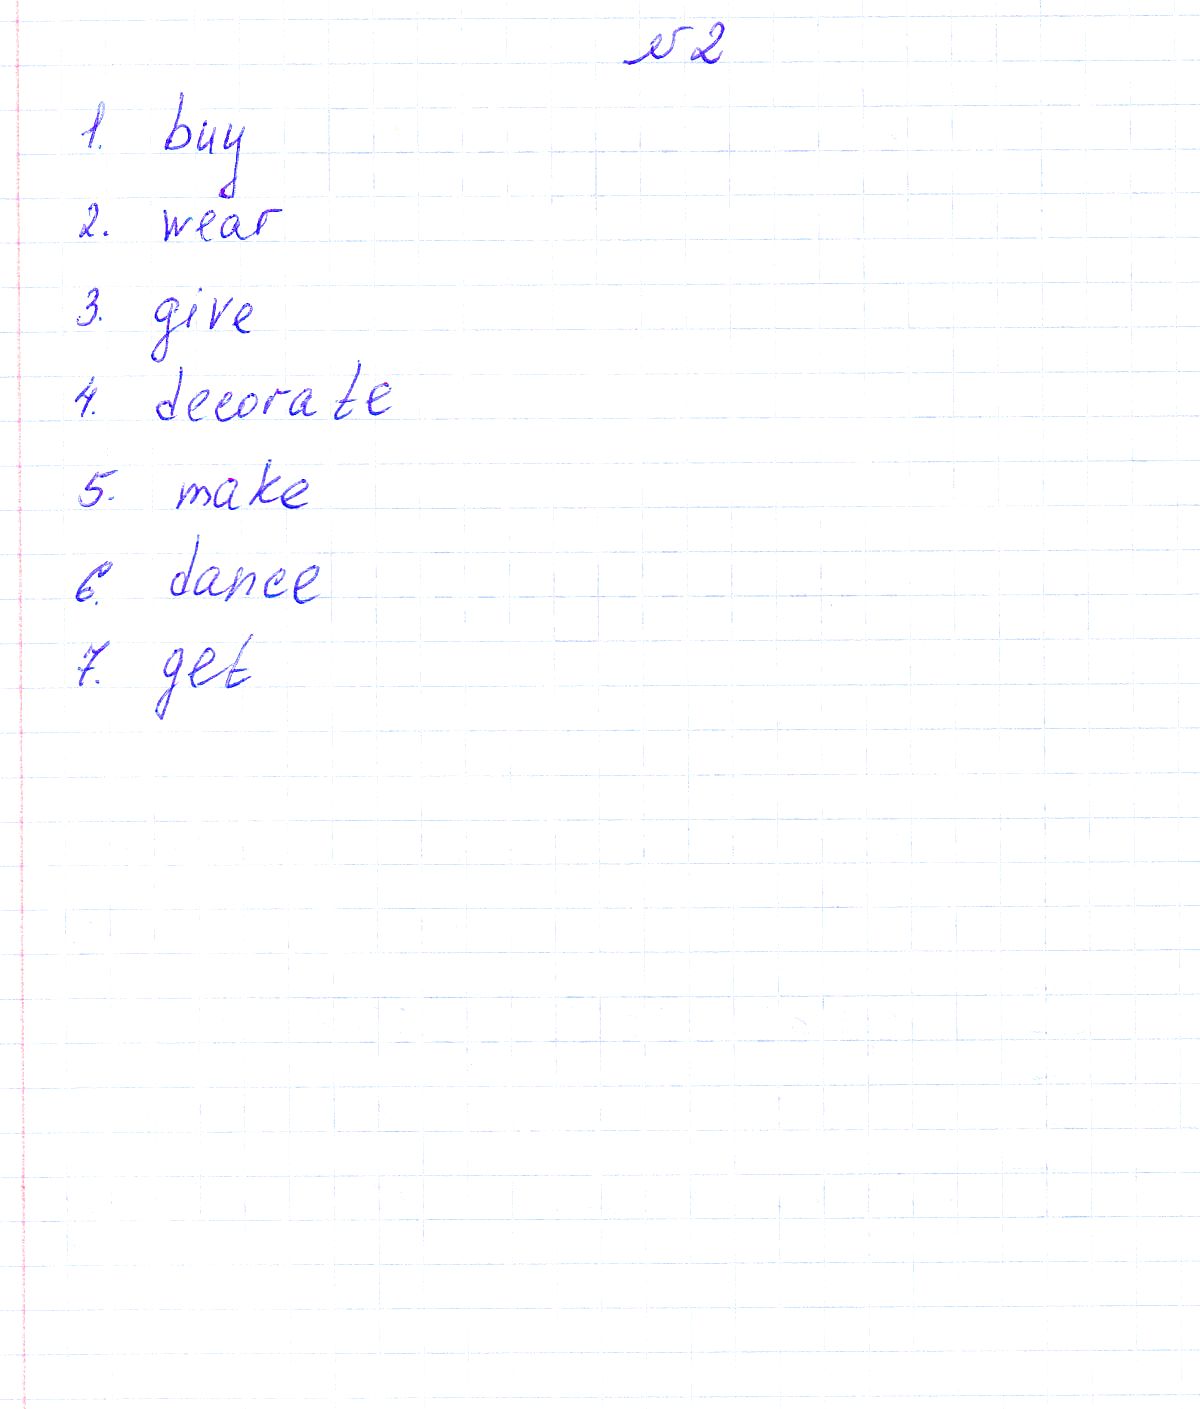 №2
1. buy
2. wear
3. give
4. decorate
5. make
6. dance
7. get